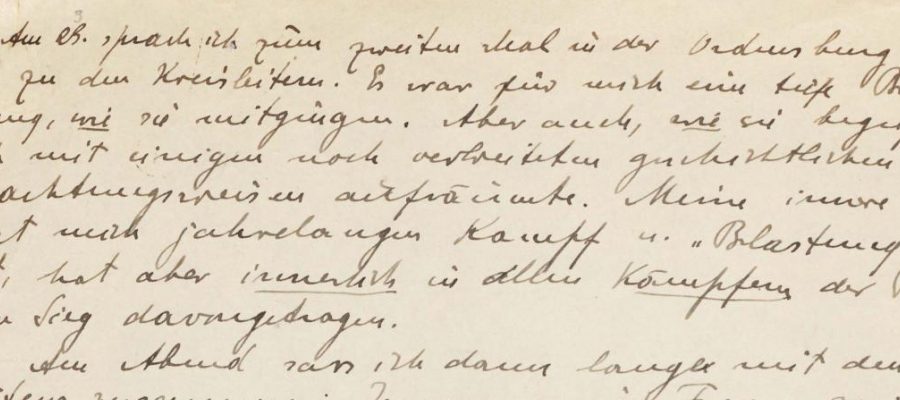 Am 28. sprach ich zum zweiten Mal in der Ordensburg
zu den Kreisleitern. Es war für mich eine tiefe B
ung, wie sie mitgingen. Aber auch, wie sie
mit einigen noch verbreiteten geschichtlichen
achtungsweisen aufräumte. Meine innere
mich jahrelangen Kampf u. „Belastung
hat aber innerlich in allen Kämpfen der
Sieg davongetragen.
Am Abend sass ich dann lange mit den